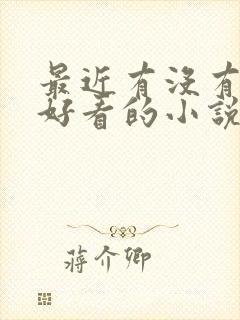 最近有没有
好看的小説
蔣介卿